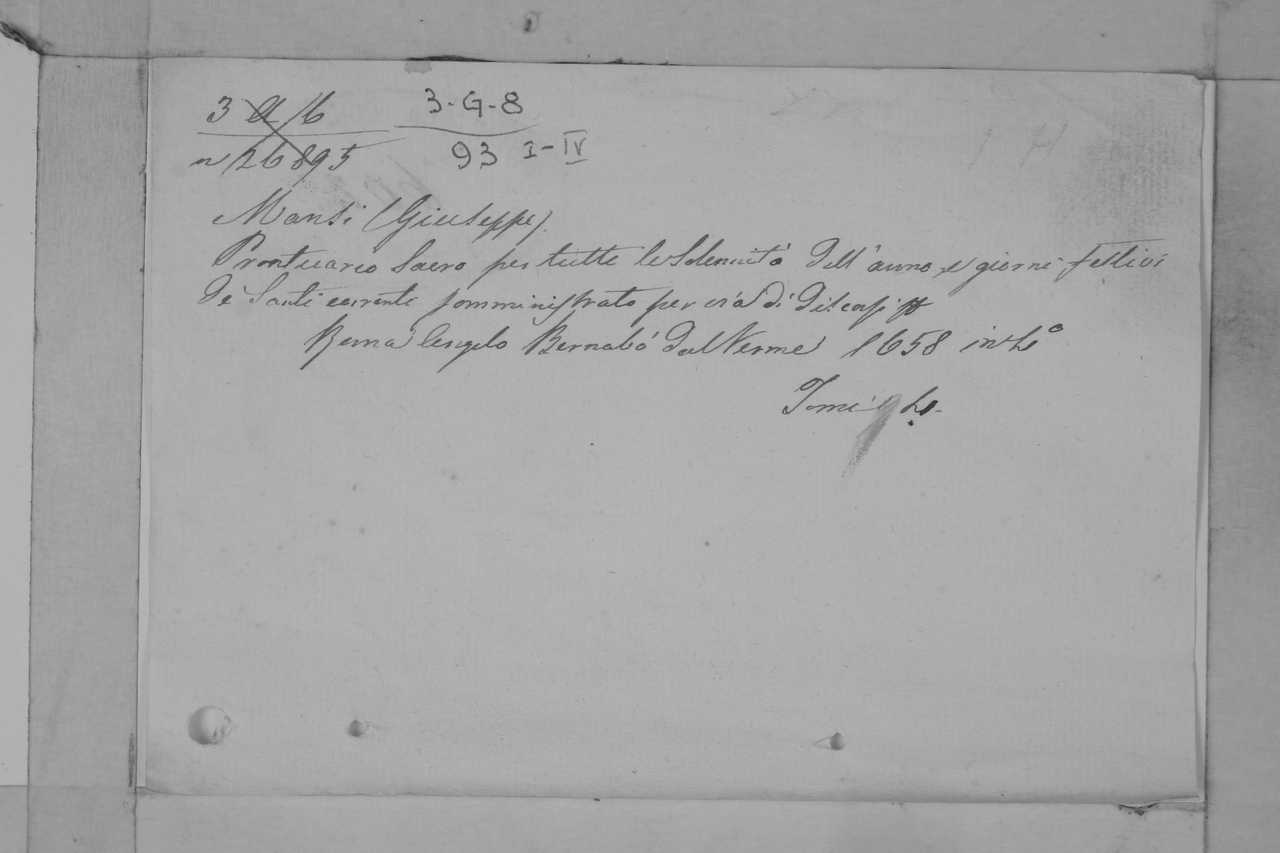 3 A 16 3-G-8
n 26895 93 I-IV
Mansi (Giuseppe).
Prontuario Sacro per tutte le Solennità dell'anno, e giorni festivi
de' Santi correnti somministrato per via di discorsi
Roma Angelo Bernabò dal Verme 1658 in 4°
Tomi 4.